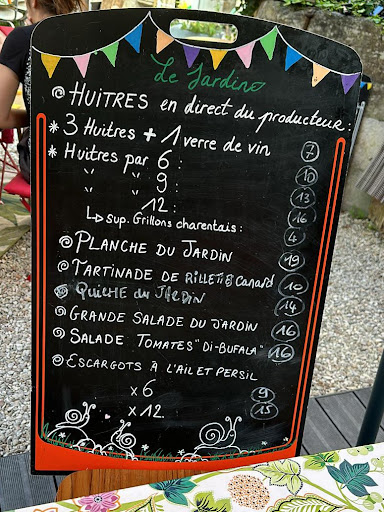 Le Jardin
HUITRES en direct du producteur :
* 3 Huitres + 1 verre de vin 7
* Huitres par 6 : 10
" 9 : 13
" " 12 : 16
↳ sup. Grillons charentais : 4
PLANCHE DU JARDIN 19
TARTINADE DE RILLETTES Canard 10
QUICHE du JARDIN 14
GRANDE SALADE DU JARDIN 16
SALADE TOMATES "DI-BUFALA" 16
ESCARGOTS À L'AIL ET PERSIL
x 6 9
x 12 15